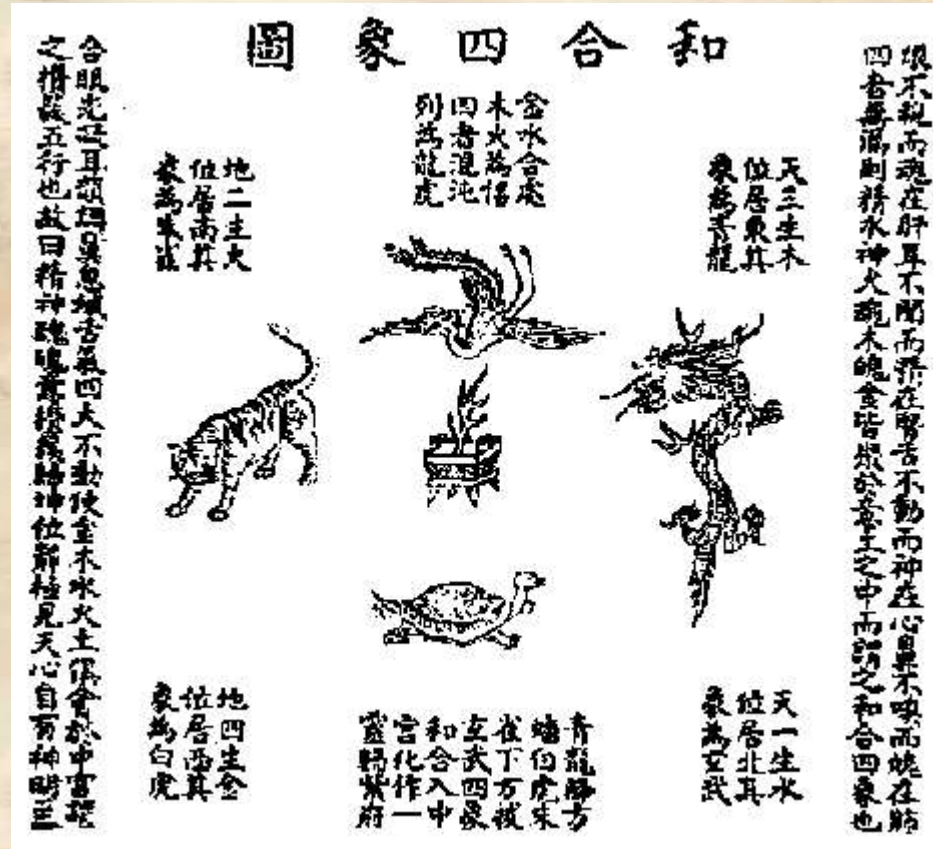 和合四象圖
眼不視而魂在肝耳不聞而精在腎舌不動而神在心鼻不嗅而魄在肺
四者無漏則精水神火魂木魄金皆聚於意土之中而謂之和合四象也
天三生木
位居東其
象為青龍
金水合處
木火為侶
四者混沌
列為龍虎
地二生火
位居南其
象為朱雀
天一生水
位居北其
象為玄武
青龍方
白虎朱
雀下方
玄武四象
和合入中
宮化作一
靈歸紫府
地四生金
位居西其
象為白虎
含眼光凝耳韻調鼻息緘舌氣四大不動使金木水火土俱會於中宮謂
之攢簇五行也故曰精神魂魄意攢簇歸坤位靜極見天心自有神明至